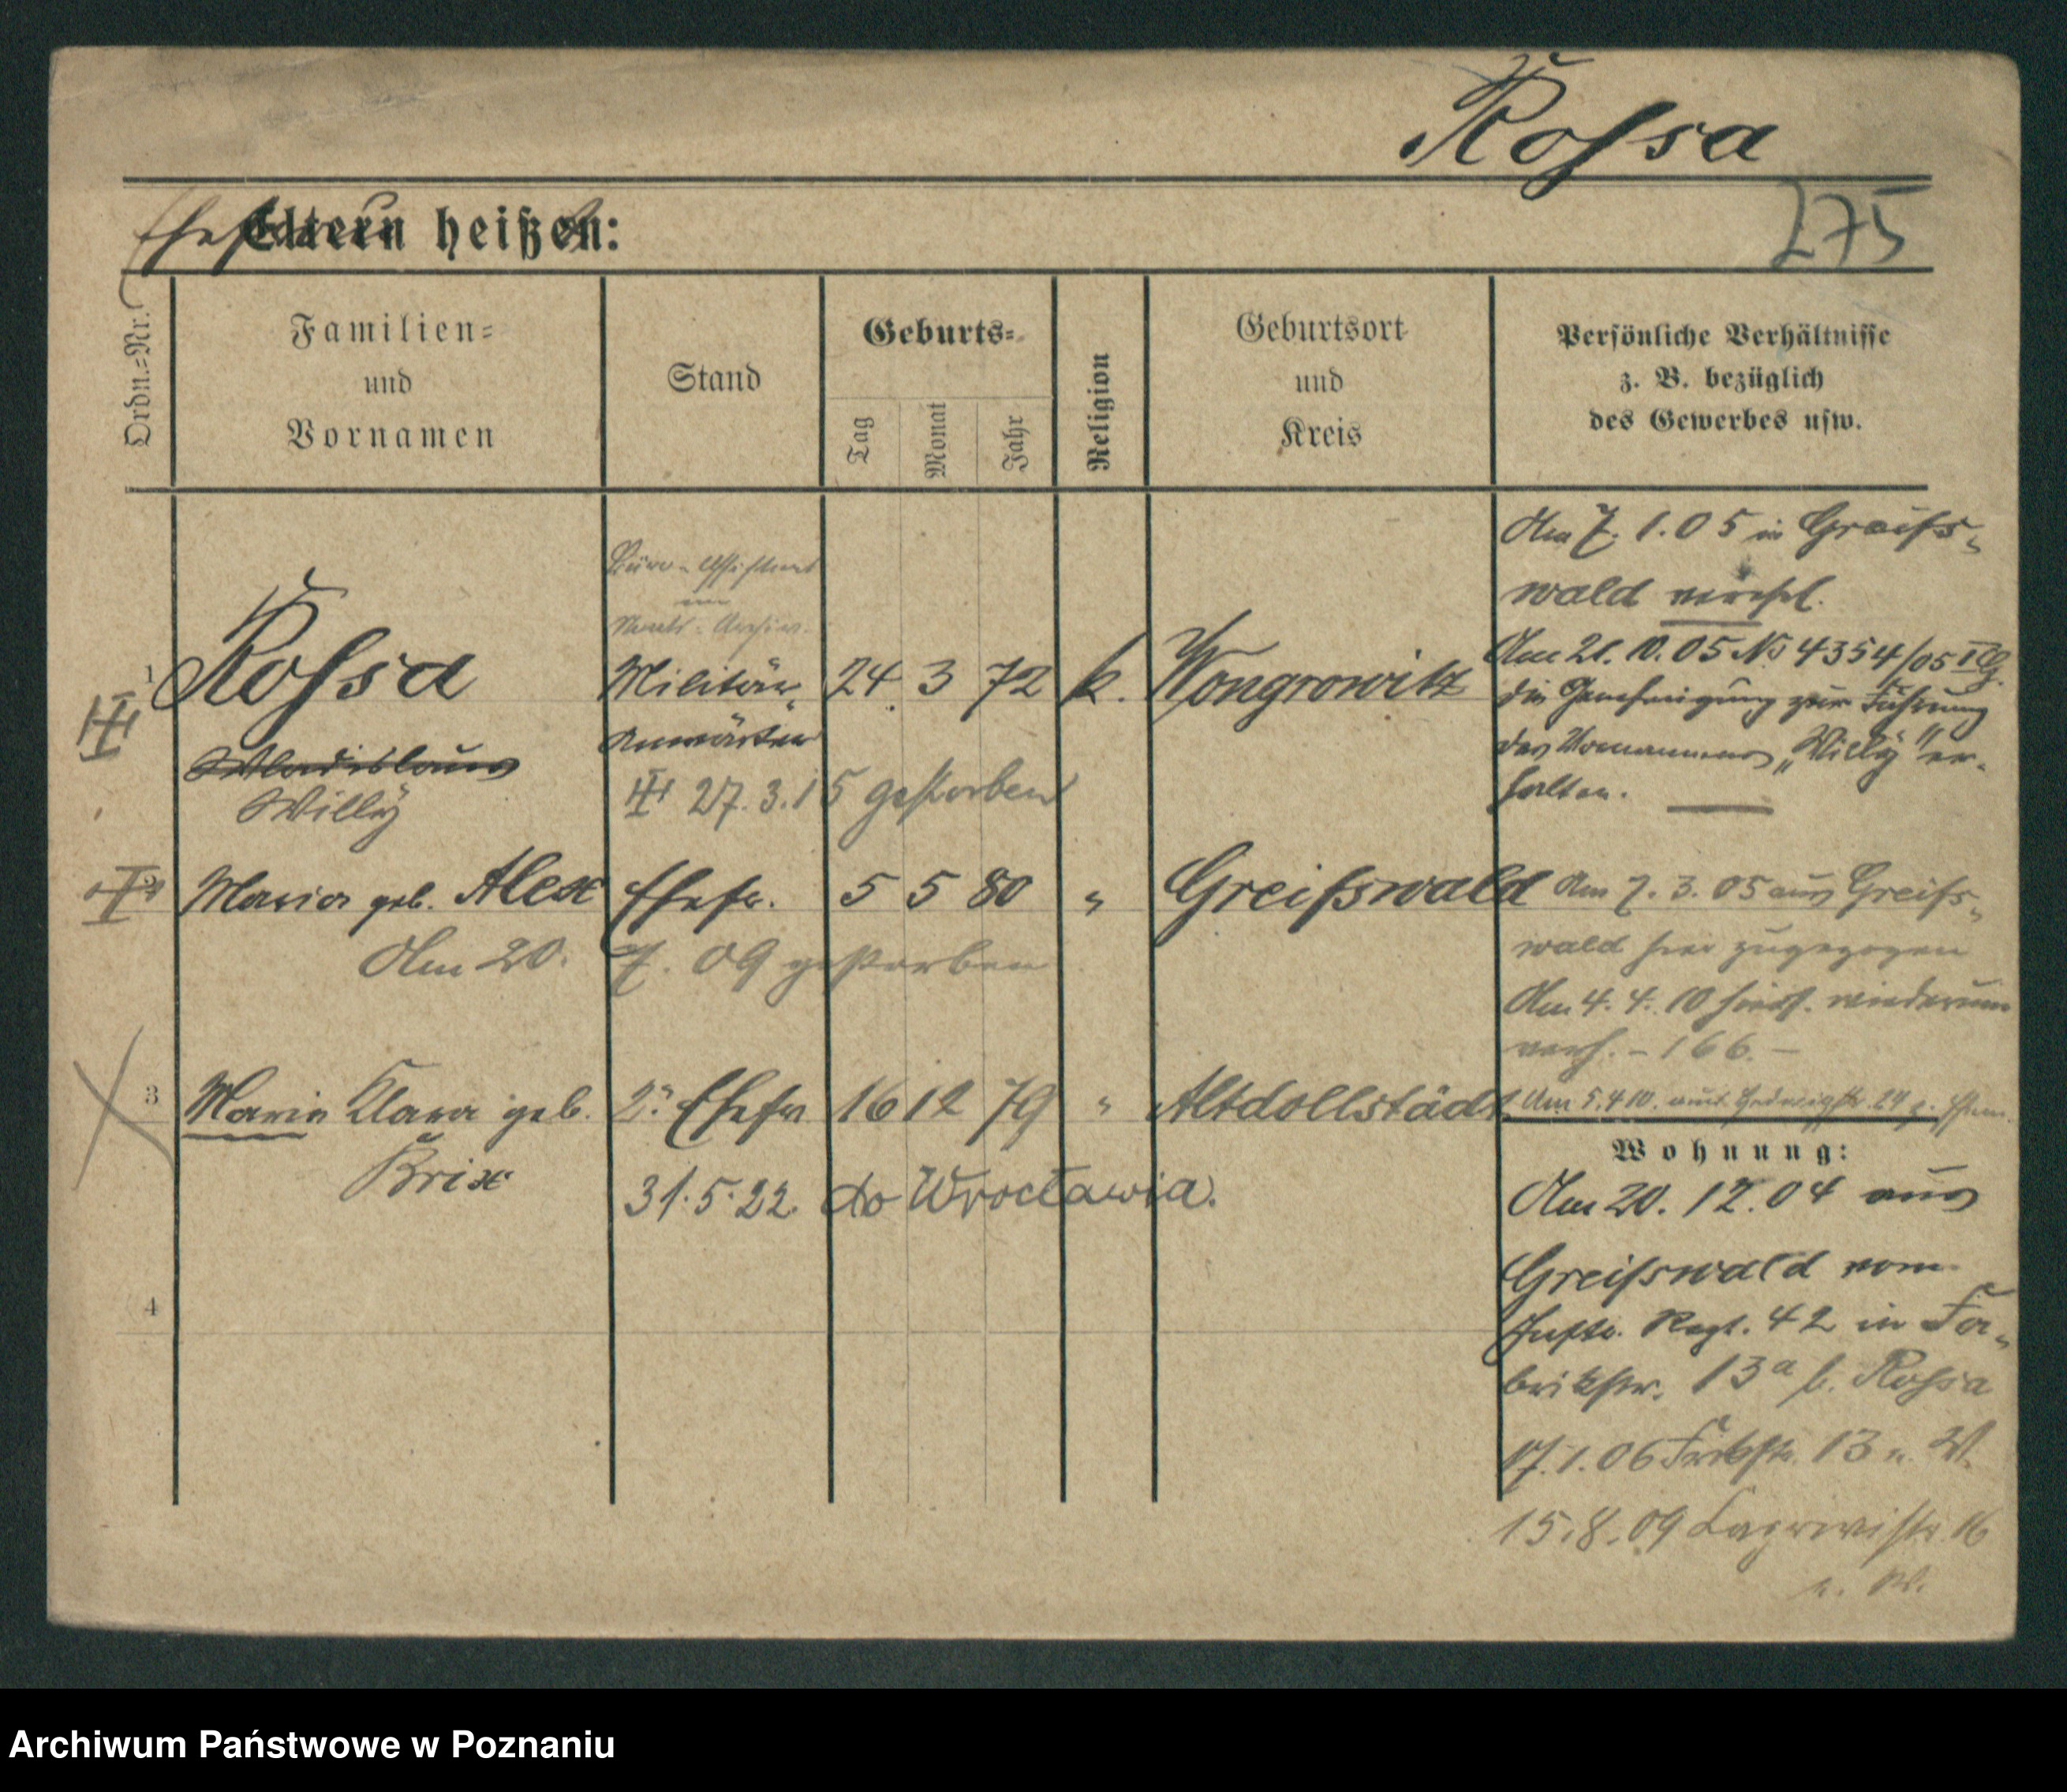 Rossa
Eltern heißen:
275
Ordn.=Nr.
Familien=
und
Vornamen
Stand
Geburts=
Tag
Monat
Jahr
Religion
Geburtsort
und
Kreis
Persönliche Verhältnisse
z. B. bezüglich
des Gewerbes usw.
Büro-Assistent
im
Staats-Archiv.
1 Rossa Militär- 24. 3 72 k. Wongrowitz
Anwärter
Wladislaus
Willy
27.3.15 gestorben
Am 7. 1. 05 in Greifs-
wald verehel.
Am 21. 10. 05 No 4354/05
die Genehmigung zur Führung
des Vornamens „Willy" er-
halten.
2 Maria geb. Alex Ehefr. 5 5 80 " Greifswald
Am 20. 7. 09 gestorben
Am 7. 3. 05 aus Greifs-
wald hier zugezogen
Am 4. 4. 10 wiederum
verh. - 166. -
3 Maria Klara geb. 2. Ehefr 16 12 79 " Altdollstädt
Brix
31.5.22. do Wrocławia.
Am 5.4.10. aus 24 z.
Wohnung:
Am 20. 12. 04 aus
Greifswald vom
Inftr. Regt. 42 in Fa-
brikstr. 13a b. Rossa
17.1.06 Frbkstr. 13 n. W.
15.8.09 16
n. W.
4
Archiwum Państwowe w Poznaniu